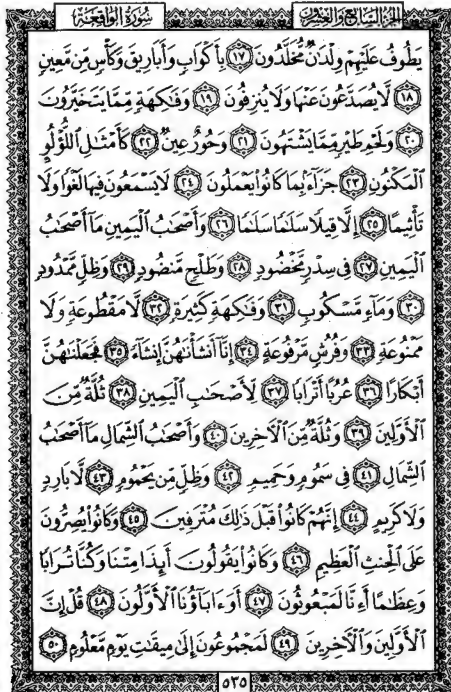 الجزء السابع والعشرون سُورَةُ الوَاقِعَة
يَطُوفُ عَلَيْهِمْ وِلْدَٰنٌ مُّخَلَّدُونَ ١٧ بِأَكْوَابٍ وَأَبَارِيقَ وَكَأْسٍ مِّن مَّعِينٍ
١٨ لَّا يُصَدَّعُونَ عَنْهَا وَلَا يُنزِفُونَ ١٩ وَفَٰكِهَةٍ مِّمَّا يَتَخَيَّرُونَ
٢٠ وَلَحْمِ طَيْرٍ مِّمَّا يَشْتَهُونَ ٢١ وَحُورٌ عِينٌ ٢٢ كَأَمْثَٰلِ اللُّؤْلُوِٕ
الْمَكْنُونِ ٢٣ جَزَآءَۢ بِمَا كَانُوا۟ يَعْمَلُونَ ٢٤ لَا يَسْمَعُونَ فِيهَا لَغْوًا وَلَا
تَأْثِيمًا ٢٥ إِلَّا قِيلًا سَلَٰمًا سَلَٰمًا ٢٦ وَأَصْحَٰبُ الْيَمِينِ مَآ أَصْحَٰبُ
الْيَمِينِ ٢٧ فِى سِدْرٍ مَّخْضُودٍ ٢٨ وَطَلْحٍ مَّنضُودٍ ٢٩ وَظِلٍّ مَّمْدُودٍ
٣٠ وَمَآءٍ مَّسْكُوبٍ ٣١ وَفَٰكِهَةٍ كَثِيرَةٍ ٣٢ لَّا مَقْطُوعَةٍ وَلَا
مَمْنُوعَةٍ ٣٣ وَفُرُشٍ مَّرْفُوعَةٍ ٣٤ إِنَّآ أَنشَأْنَٰهُنَّ إِنشَآءً ٣٥ فَجَعَلْنَٰهُنَّ
أَبْكَارًا ٣٦ عُرُبًا أَتْرَابًا ٣٧ لِّأَصْحَٰبِ الْيَمِينِ ٣٨ ثُلَّةٌ مِّنَ
الْأَوَّلِينَ ٣٩ وَثُلَّةٌ مِّنَ الْءَاخِرِينَ ٤٠ وَأَصْحَٰبُ الشِّمَالِ مَآ أَصْحَٰبُ
الشِّمَالِ ٤١ فِى سَمُومٍ وَحَمِيمٍ ٤٢ وَظِلٍّ مِّن يَحْمُومٍ ٤٣ لَّا بَارِدٍ
وَلَا كَرِيمٍ ٤٤ إِنَّهُمْ كَانُوا۟ قَبْلَ ذَٰلِكَ مُتْرَفِينَ ٤٥ وَكَانُوا۟ يُصِرُّونَ
عَلَى الْحِنثِ الْعَظِيمِ ٤٦ وَكَانُوا۟ يَقُولُونَ أَئِذَا مِتْنَا وَكُنَّا تُرَابًا
وَعِظَٰمًا أَءِنَّا لَمَبْعُوثُونَ ٤٧ أَوَءَابَآؤُنَا الْأَوَّلُونَ ٤٨ قُلْ إِنَّ
الْأَوَّلِينَ وَالْءَاخِرِينَ ٤٩ لَمَجْمُوعُونَ إِلَىٰ مِيقَٰتِ يَوْمٍ مَّعْلُومٍ ٥٠
٥٣٥